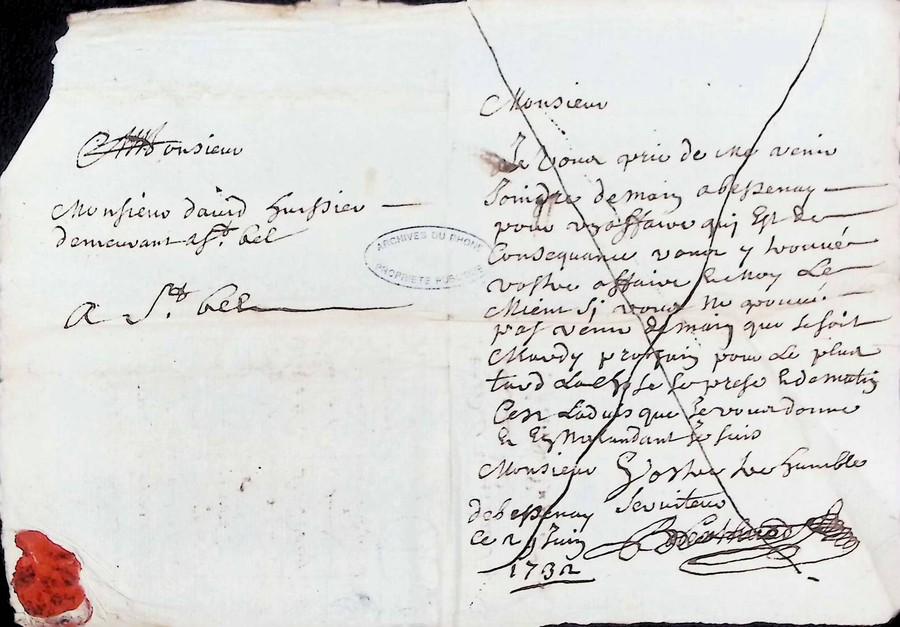 Monsieur
Monsieur david huissier
demeurant a St. bel
A St. bel
ARCHIVES DU RHONE
PROPRIETE PUBLIQUE
Monsieur
Je vous prie de me venir
Joindre demain a bessenay
pour un affaire qui Est de
Consequance vous y trouvé
vostre affaire Et moy Le
Mient Si vous ne pouvé
pas venir demain que se soit
Mardy prochain pour Le plus
tard La chose se prese Et de matin
C'est Ladvis que Je vous donne
Et En Me Rendant Je suis
Monsieur Vostre tres humble
Serviteur
de bessenay
Ce 2 Juin
1732